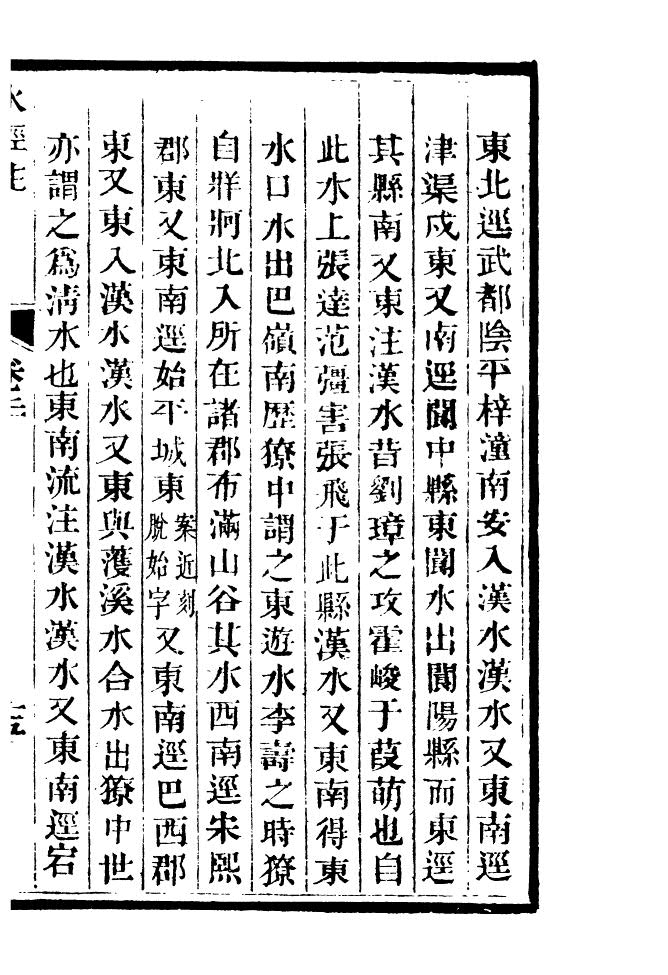 東北逕武都陰平梓潼南安入漢水漢水又東南逕
津渠戍東又南逕閬中縣東閬水出閬陽縣而東逕
其縣南又東注漢水昔劉璋之攻霍峻于葭萌也自
此水上張達范彊害張飛于此縣漢水又東南得東
水口水出巴嶺南歷獠中謂之東遊水李壽之時獠
自牂牁北入所在諸郡布滿山谷其水西南逕宋熙
郡東又東南逕始平城東案近刻脫始字又東南逕巴西郡
東又東入漢水漢水又東與濩溪水合水出獠中世
亦謂之為清水也東南流注漢水漢水又東南逕宕
水經注
卷二